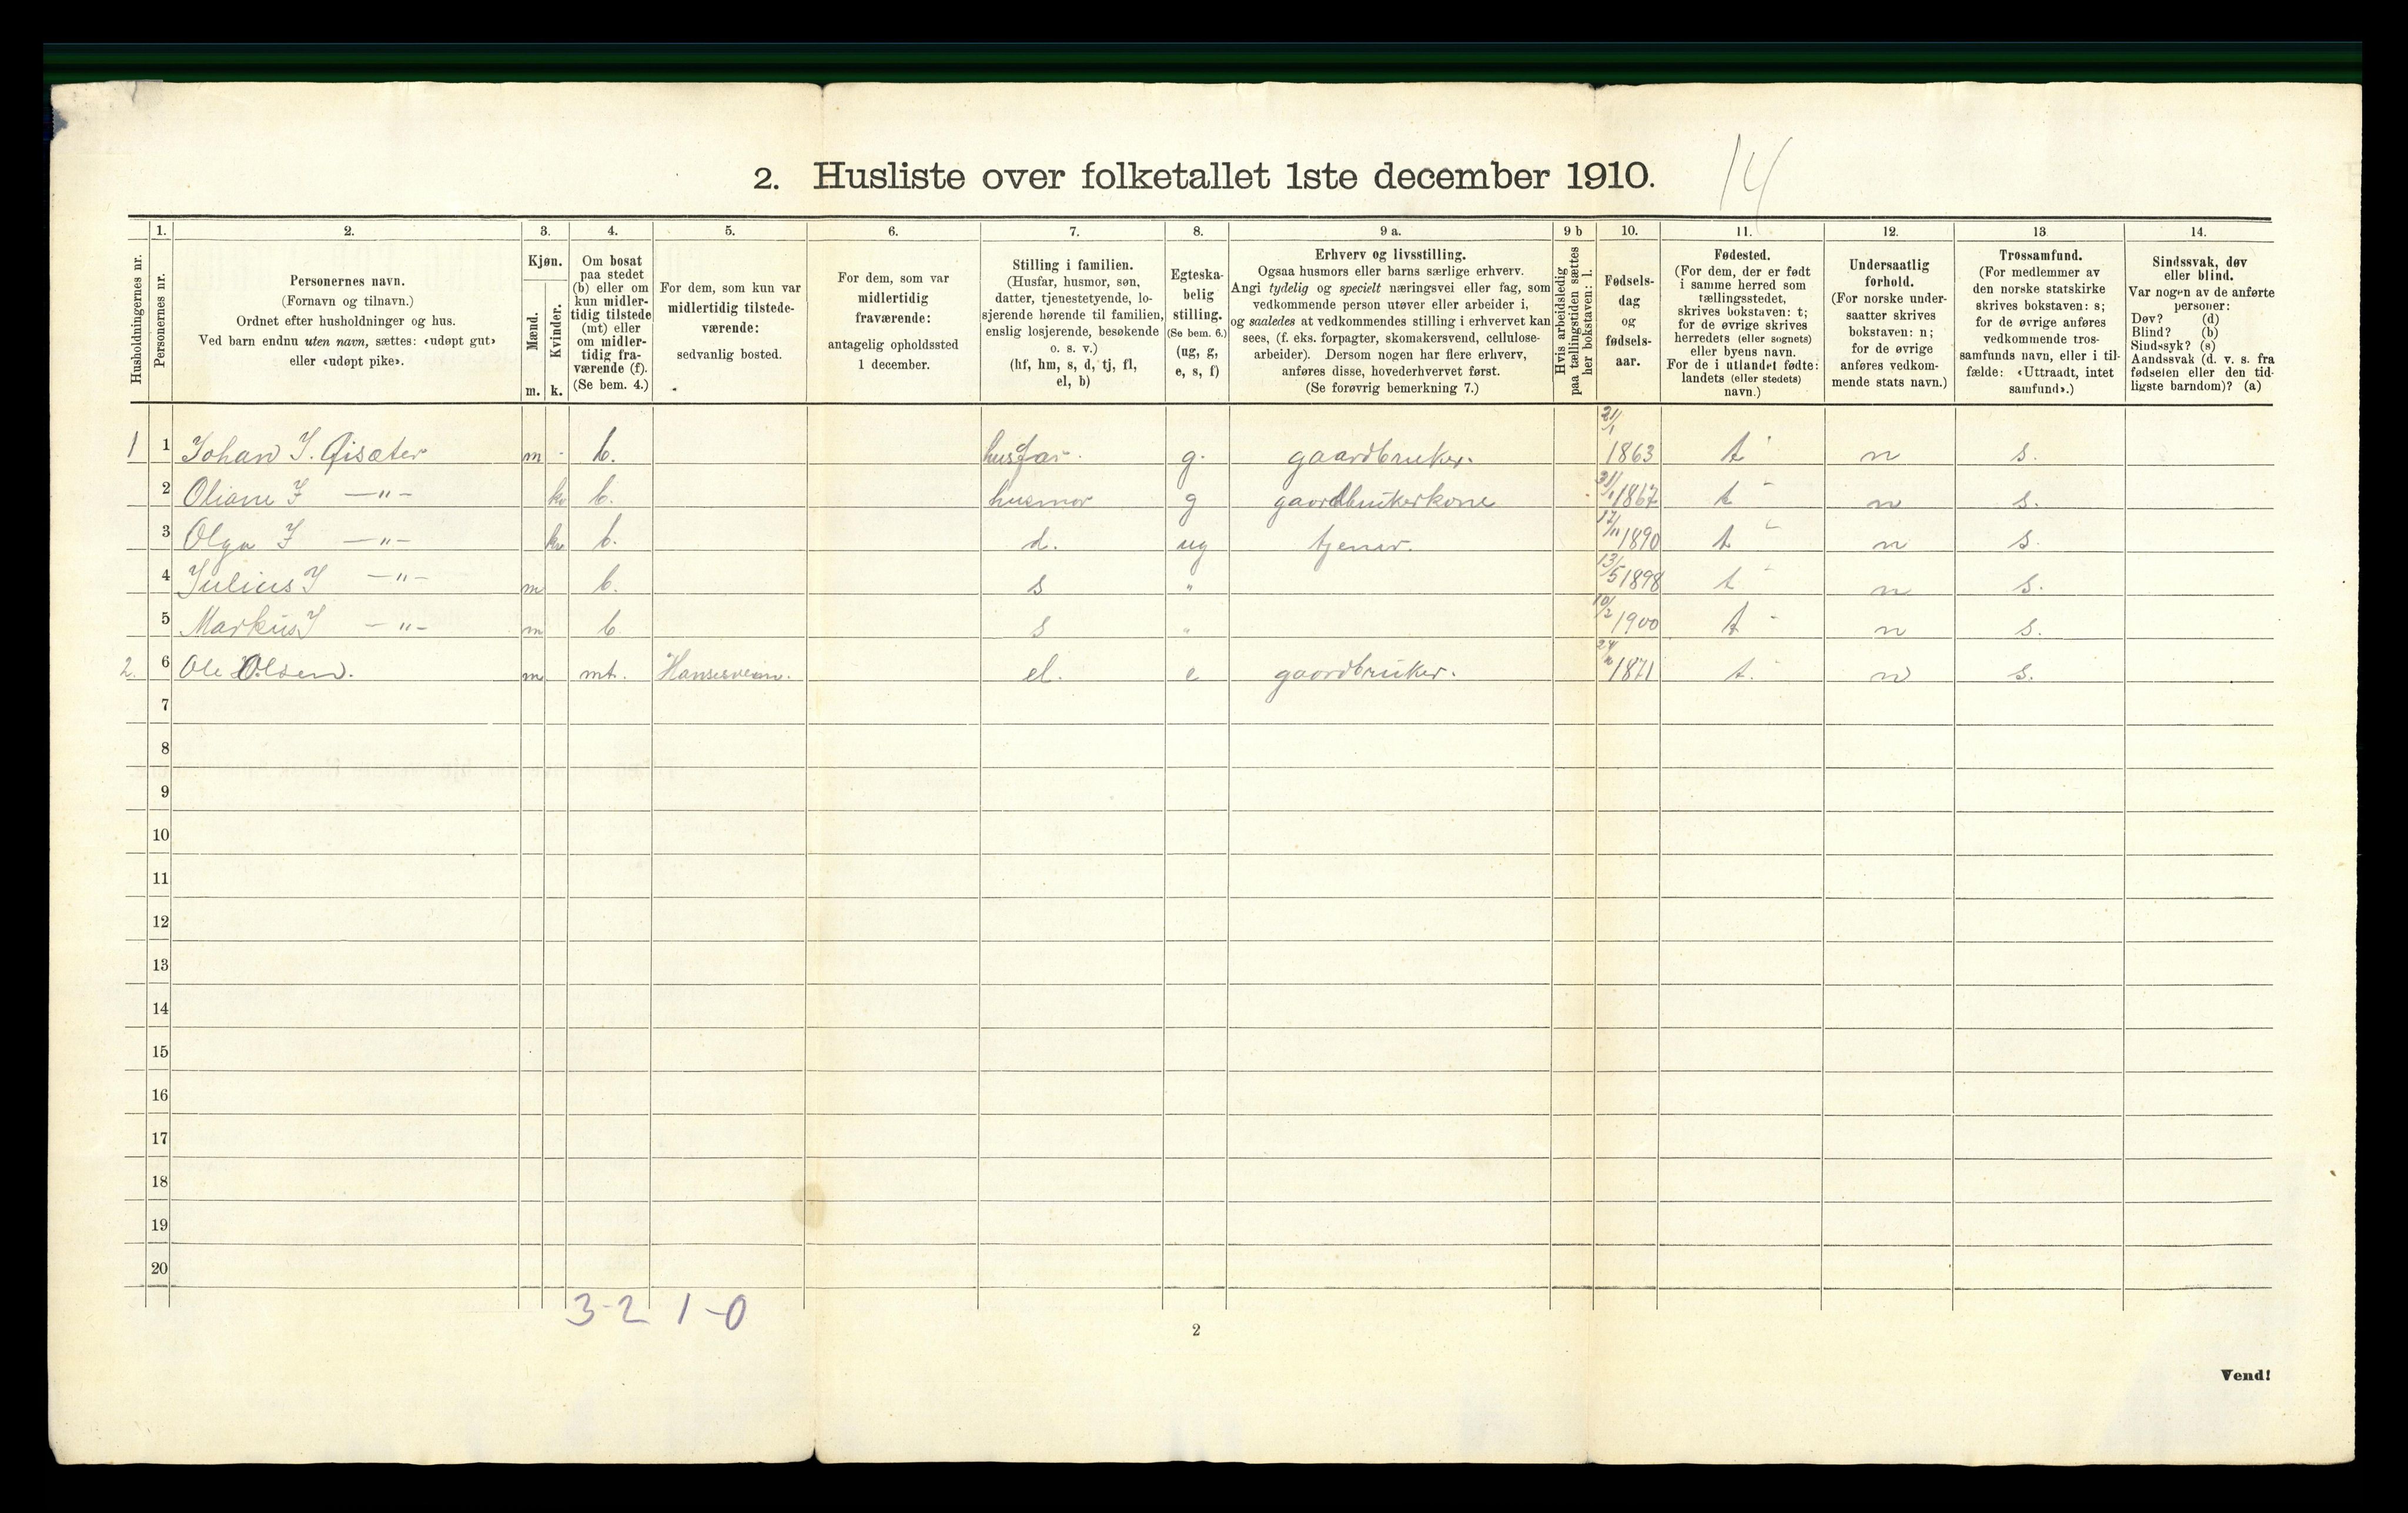 2. Husliste over folketallet 1ste december 1910.
14
Husholdningernes nr.
1.
Personernes nr.
2.
Personernes navn.
(Fornavn og tilnavn.)
Ordnet efter husholdninger og hus.
Ved barn endnu uten navn, sættes: «udøpt gut»
eller «udøpt pike».
3.
Kjøn.
Mænd.
m.
Kvinder.
k.
4.
Om bosat
paa stedet
(b) eller om
kun midler-
tidig tilstede
(mt) eller
om midler-
tidig fra-
værende (f).
(Se bem. 4.)
5.
For dem, som kun var
midlertidig tilstede-
værende:
sedvanlig bosted.
6.
For dem, som var
midlertidig
fraværende:
antagelig opholdssted
1 december.
7.
Stilling i familien.
(Husfar, husmor, søn,
datter, tjenestetyende, lo-
sjerende hørende til familien,
enslig losjerende, besøkende
o. s. v.)
(hf, hm, s, d, tj, fl,
el, b)
8.
Egteska-
belig
stilling.
(Se bem. 6.)
(ug, g,
e, s, f)
9 a.
Erhverv og livsstilling.
Ogsaa husmors eller barns særlige erhverv.
Angi tydelig og specielt næringsvei eller fag, som
vedkommende person utøver eller arbeider i,
og saaledes at vedkommendes stilling i erhvervet kan
sees, (f. eks. forpagter, skomakersvend, cellulose-
arbeider). Dersom nogen har flere erhverv,
anføres disse, hovederhvervet først.
(Se forøvrig bemerkning 7.)
9 b
Hvis arbeidsledig
paa tællingstiden sættes
her bokstaven: l.
10.
Fødsels-
dag
og
fødsels-
aar.
11.
Fødested.
(For dem, der er født
i samme herred som
tællingsstedet,
skrives bokstaven: t;
for de øvrige skrives
herredets (eller sognets)
eller byens navn.
For de i utlandet fødte:
landets (eller stedets)
navn.)
12.
Undersaatlig
forhold.
(For norske under-
saatter skrives
bokstaven: n;
for de øvrige
anføres vedkom-
mende stats navn.)
13
Trossamfund.
(For medlemmer av
den norske statskirke
skrives bokstaven: s;
for de øvrige anføres
vedkommende tros-
samfunds navn, eller i til-
fælde: «Uttraadt, intet
samfund».)
14.
Sindssvak, døv
eller blind.
Var nogen av de anførte
personer:
Døv? (d)
Blind? (b)
Sindssyk? (s)
Aandssvak (d. v. s. fra
fødselen eller den tid-
ligste barndom)? (a)
1 1 Johan I. Gisæter m - b. husfar. g. gaardbruker. 21/1 1863 t n s.
2 Oliane I —"— kv b. husmor g gaardbrukerkone 31/1 1867 t n s.
3 Olga I —"— kv b. d. ug tjener. 17/11 1890 t n s.
4 Julius I —"— m b. s " 13/5 1898 t n s.
5 Markus I —"— m b s " 10/2 1900 t n s.
2. 6 Ole Olsen. m mt. el. e gaardbruker. 1871 t. n s.
7
8
9
10
11
12
13
14
15
16
17
18
19
20
3-2 1-0
2
Vend!